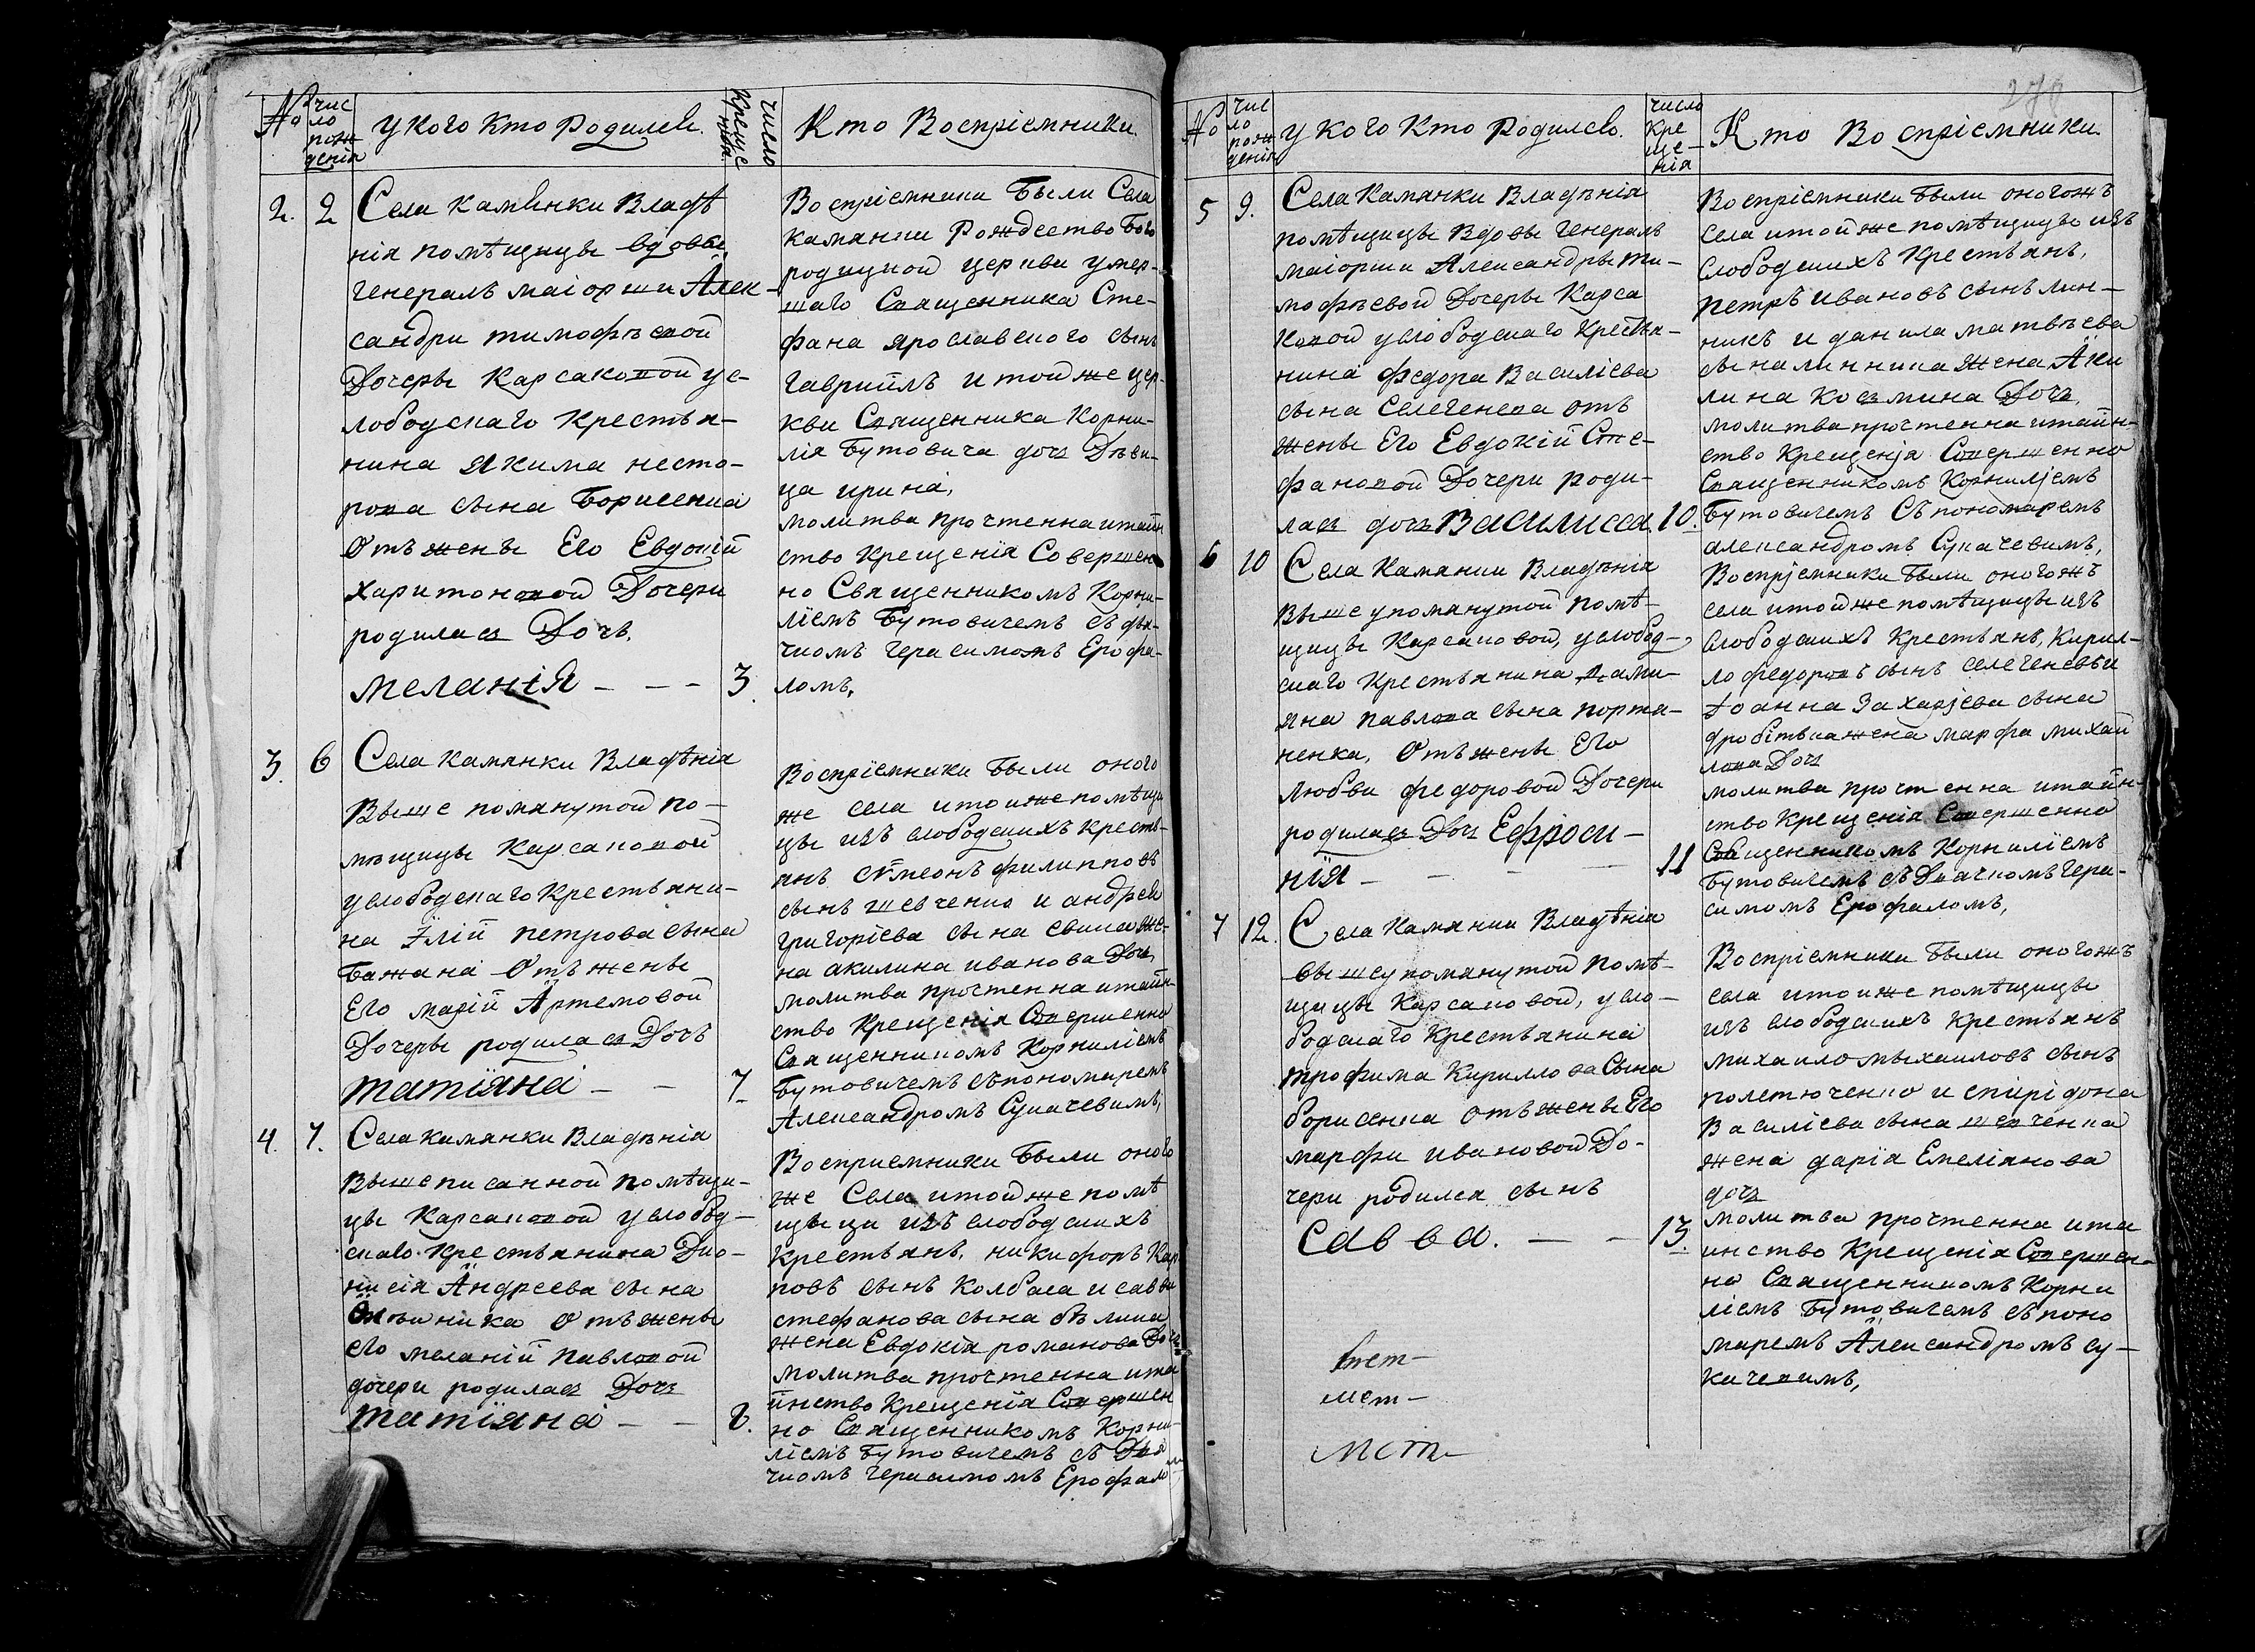 №
чис
ло
рож
денія
У кого Кто Родилсь.
число
Креще
нія
Кто Воспріемники.
2. 2
Села Камѣнки Владѣ
нія помѣщицы вдовы
генералъ маіорши Алек-
сандри тимофѣевой
Дочеры Карсаковой ус-
лободскаго Крестья-
нина Якима несто-
рова сына Борисенка
Отъ жены Его Евдокій
харитоновой Дочери
родилась Дочь,
меланія - - - 3.
Воспріемники Были Села
Камянки Рождество Бого
родицкой церкви умер-
шаго Священника Сте-
фана ярославского сынъ
гавриилъ и той же цер-
кви Священника Корни-
лія Бутовича дочь Дѣви-
ца ирина,
молитва прочтенна итайн
ство Крещенія Совершен
но Священникомъ Корни-
ліемъ Бутовичемъ съ дья-
чкомъ герасимомъ Ерофа-
ломъ,
3. 6
Села Камянки Владѣнія
Выше помянутой по-
мѣщицы Карсаковой
услободскаго Крестьяни-
на Іліи петрова сына
Бажана Отъ жены
Его маріи Артемовой
Дочеры родилась Дочь
татіяна - - 7
Воспріемники Были оного
же села итоиже помѣщи
цы изъ слободскихъ крестья-
янъ сѵмеонъ филипповъ
сынъ шевченко и андрея
григоріева сына свиса же-
на акилина иванова Дочь,
молитва прочтенна итайн-
ство Крещенія Совершенно
Священникомъ Корниліемъ
Бутовичемъ съпономаремъ
Александромъ Сукачевимъ,
4. 7.
Села Камянки Владѣнія
Вышеписанной помѣщи-
цы Карсаковой услобод-
скаго Крестьянина Дио-
нисія Андреева сына
отъ жены
его меланій павловой
дочери родилась Дочь
татіяна - - 8.
Восприемники Были оного
же Села итойже помѣ
щыца изъ слободскихъ
крестьянъ, никифоръ Кар
повъ сынъ Колбаса и саввы
стефанова сына бѣлика
жена Евдокія романова Дочь
молитва прочтенна ита
инство Крещенія Совершен
но Священникомъ Корни-
ліемъ Бутовичемъ съ Дья
чкомъ герасимомъ Ерофало
270
№
чис
ло
рож
денія
У кого Кто Родилсь.
число
Кре
ще-
нія
Кто Воспріемники.
5 9.
Села Камянки Владѣнія
помѣщицы Вдовы генералъ
маіорши Александры ти-
мофѣевой Дочеры Карса
ковой услободскаго Крестья-
нина федора Василіева
сына селегенева отъ
жены Его Евдокій Сте-
фановой Дочери роди-
лась дочь Василисса 10.
Воспріемники Были оногожъ
села итой же помѣщицы изъ
слободскихъ Крестьянъ,
петръ ивановъ сынъ лин-
никъ и данила матвѣева
сына линника жена Аки
лина Козмина Дочь,
молитва прочтенна итайн-
ство Крещенія Совершенно
Священникомъ Корниліемъ
Бутовичемъ Съ пономаремъ
александромъ Сукачевимъ,
6 10
Села Камянки Владѣнія
Вышеупомянутой помѣ-
щицы Карсаковой, услобод-
скаго Крестьянина Дами-
яна павлова сына портя-
ненка, Отъ жены Его
Любви федоровой Дочери
родилась Дочь Ефроси-
нія - - - - 11
Воспріемники Были оногожъ
села итойже помѣщицы изъ
слободскихъ Крестьянъ, Кирил-
ло федоровъ сынъ селегеневъ и
Іоанна Захаріева сына
дробітька жена марфа михаи
лова Дочь
молитва прочтенна итайн-
ство Крещенія Совершенно
Священникомъ Корниліемъ
Бутовичемъ съ Дьячкомъ гера-
симомъ Ерофаломъ,
7 12.
Села Камянки Владѣнія
вышеупомянутой помѣ-
щицы Карсаковой, усло-
бодскаго Крестьянина
трофима Кириллова Сына
борисенка отъ жены Его
марфи ивановой До-
чери родился сынъ
Савва. - - 13.
Воспріемники Были оногожъ
села итоиже помѣщицы
изъ слободскихъ Крестьянъ
михаило мыхаиловъ сынъ
полетюченко и спірідона
Василіева сына шевченка
жена дарія Емеліянова
дочь
молитва прочтенна ита
инство Крещенія Совершен-
но Священникомъ Корни
ліемъ Бутовичемъ съ поно
маремъ Александромъ су-
качевимъ,